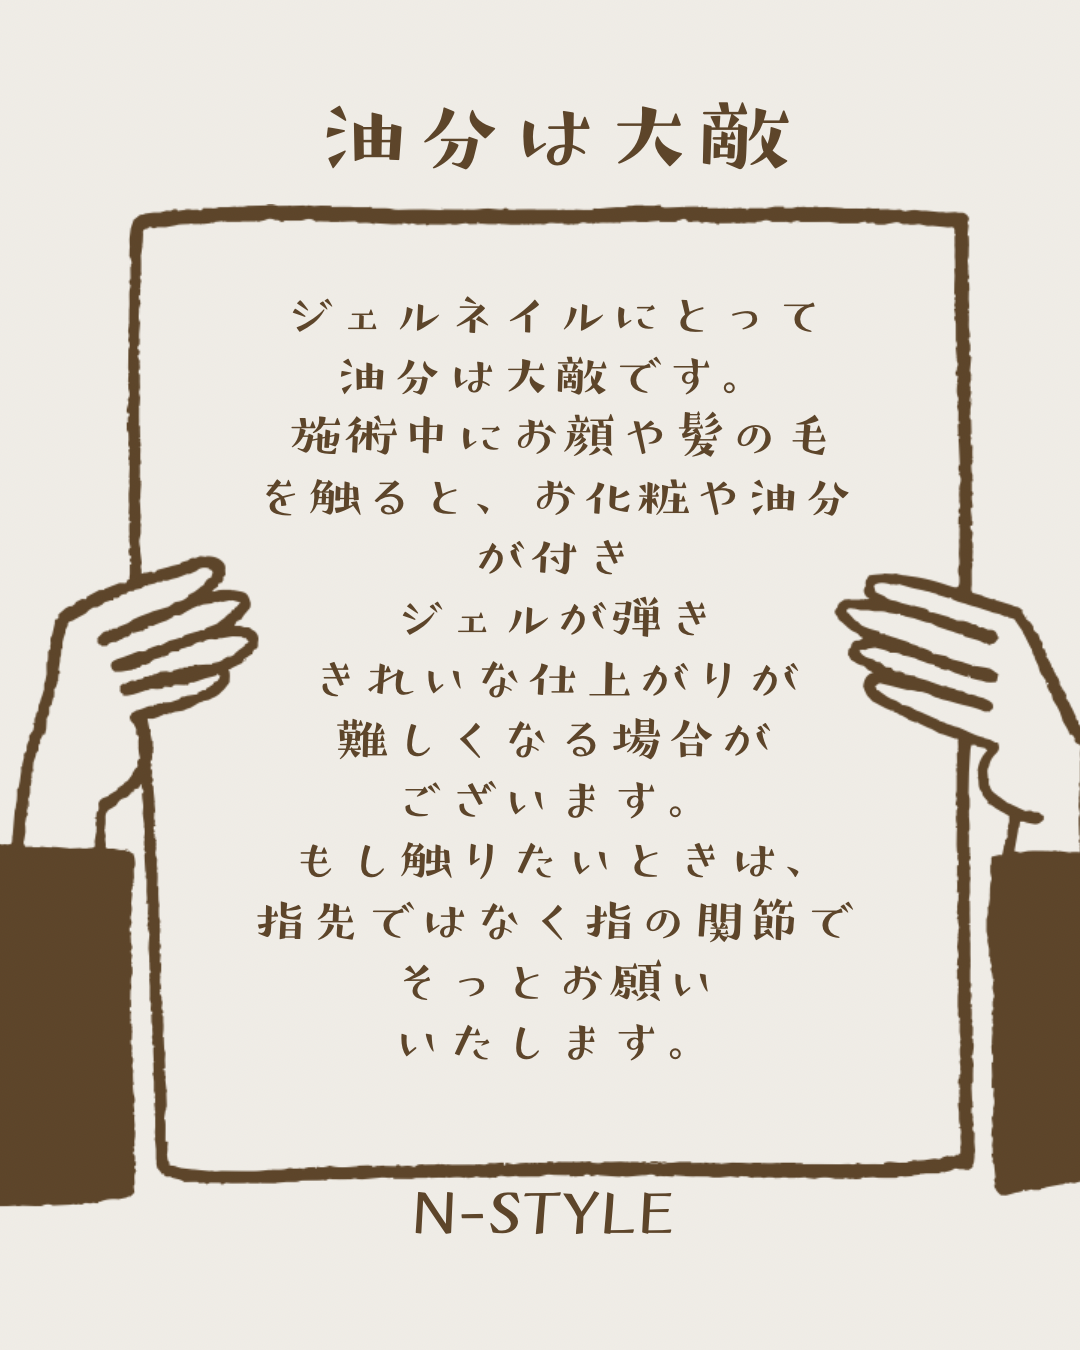 油分は大敵
ジェルネイルにとって
油分は大敵です。
施術中にお顔や髪の毛
を触ると、お化粧や油分
が付き
ジェルが弾き
きれいな仕上がりが
難しくなる場合が
ございます。
もし触りたいときは、
指先ではなく指の関節で
そっとお願い
いたします。
N-STYLE